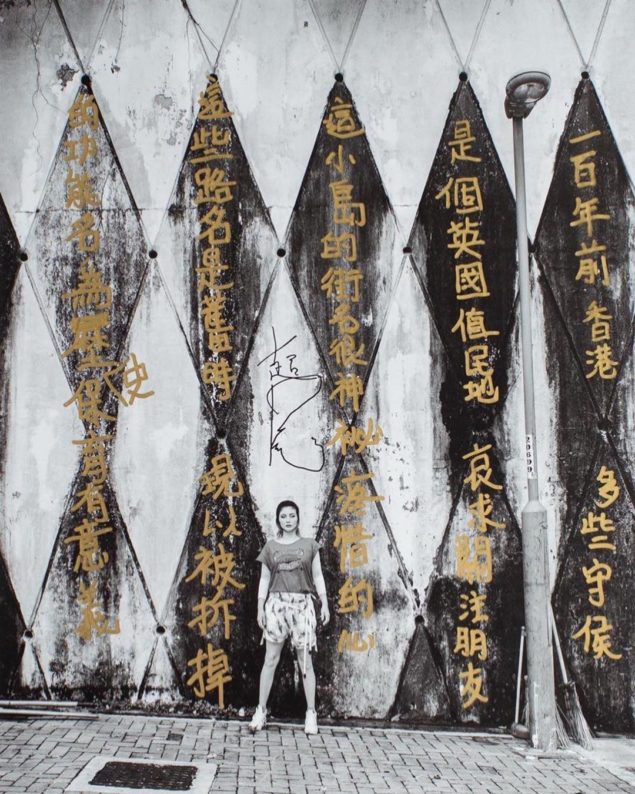 一百年前 香港 多些守侯
是個英國值民地 哀求關注朋友
這小島的街名很神祕 惜的心
這些路名是舊時 現以被拆掉
的功能名 歷使保育有意義